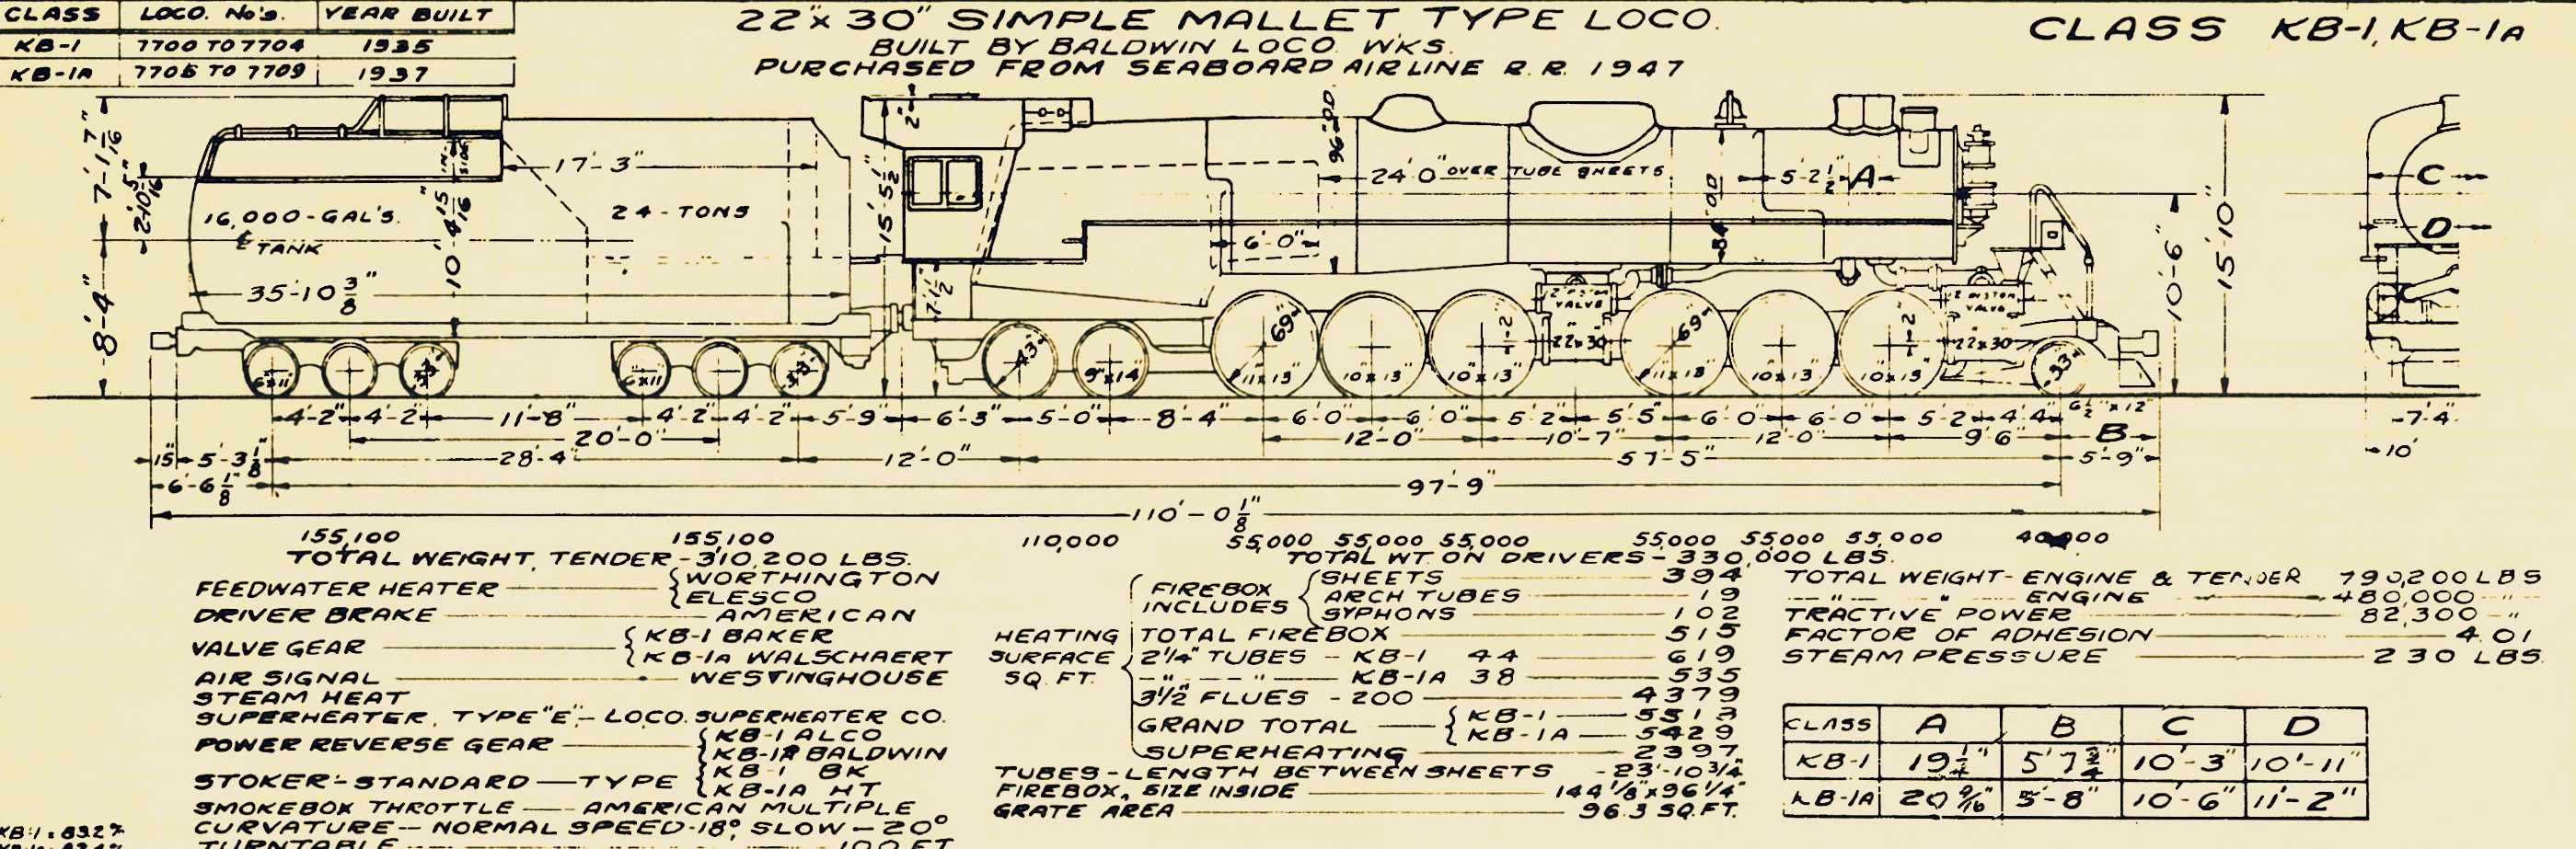 CLASS LOCO. No's. YEAR BUILT
KB-1 7700 TO 7704 1935
KB-1A 7705 TO 7709 1937
22"x 30" SIMPLE MALLET TYPE LOCO.
BUILT BY BALDWIN LOCO. WKS.
PURCHASED FROM SEABOARD AIRLINE R.R. 1947
CLASS KB-1, KB-1A
7'-1 7/16"
2'-10 5/16"
8'-4"
16,000-GAL'S.
℄ TANK
35'-10 3/8"
10'-4 15/16" IN-SIDE
17'-3"
24-TONS
2"
15'-5 1/2"
96" OD
24'0" OVER TUBE SHEETS
84" OD
5'-2 1/2"
A
6'-0"
10'-6"
15'-10"
C
D
2 PISTON VALVE
22"x30"
2 PISTON VALVE
22x30"
6"x11" 33" 6"x11 33" 43" 9"x14 69" 11"x13" 10"x13" 10"x13" 69" 11"x13" 10"x13 10x13" 33" 6 1/2"x12"
4'-2" 4'-2" 11'-8" 4'-2" 4'-2" 5'-9" 6'-3" 5'-0" 8'-4" 6'-0" 6'-0" 5'2" 5'5" 6'-0" 6'-0" 5'2" 4'4" -7'4"
20'-0" 12'-0" 10'-7" 12'-0" 9'6" B
15" 5'-3 1/8" 28'-4" 12'-0" 57'-5" 5'-9" 10'
6'-6 1/8" 97'-9"
110'-0 1/8"
155,100 155,100 110,000 55,000 55,000 55,000 55,000 55,000 55,000 40,000
TOTAL WEIGHT, TENDER-310,200 LBS.
TOTAL WT. ON DRIVERS-330,000 LBS.
FEEDWATER HEATER WORTHINGTON
ELESCO
DRIVER BRAKE AMERICAN
VALVE GEAR KB-1 BAKER
KB-1A WALSCHAERT
AIR SIGNAL WESTINGHOUSE
STEAM HEAT
SUPERHEATER, TYPE "E"- LOCO. SUPERHEATER CO.
POWER REVERSE GEAR KB-1 ALCO
KB-1A BALDWIN
STOKER-STANDARD TYPE KB-1 BK
KB-1A HT
SMOKEBOX THROTTLE AMERICAN MULTIPLE
CURVATURE-NORMAL SPEED-18°, SLOW-20°
TURNTABLE 100 FT
KB-1 = 83.2%
HEATING SURFACE SQ. FT.
FIREBOX INCLUDES SHEETS 394
ARCH TUBES 19
SYPHONS 102
TOTAL FIREBOX 515
2 1/4" TUBES - KB-1 44 619
" " KB-1A 38 535
3 1/2" FLUES - 200 4379
GRAND TOTAL KB-1 5513
KB-1A 5429
SUPERHEATING 2397
TUBES-LENGTH BETWEEN SHEETS -23'-10 3/4"
FIREBOX, SIZE INSIDE 144 1/8"x96 1/4"
GRATE AREA 96.3 SQ. FT.
TOTAL WEIGHT-ENGINE & TENDER 790,200 LBS
" " ENGINE 480,000 "
TRACTIVE POWER 82,300 "
FACTOR OF ADHESION 4.01
STEAM PRESSURE 230 LBS.
CLASS A B C D
KB-1 19 1/4" 5'7 3/4" 10'-3" 10'-11"
KB-1A 20 9/16" 5'-8" 10'-6" 11'-2"